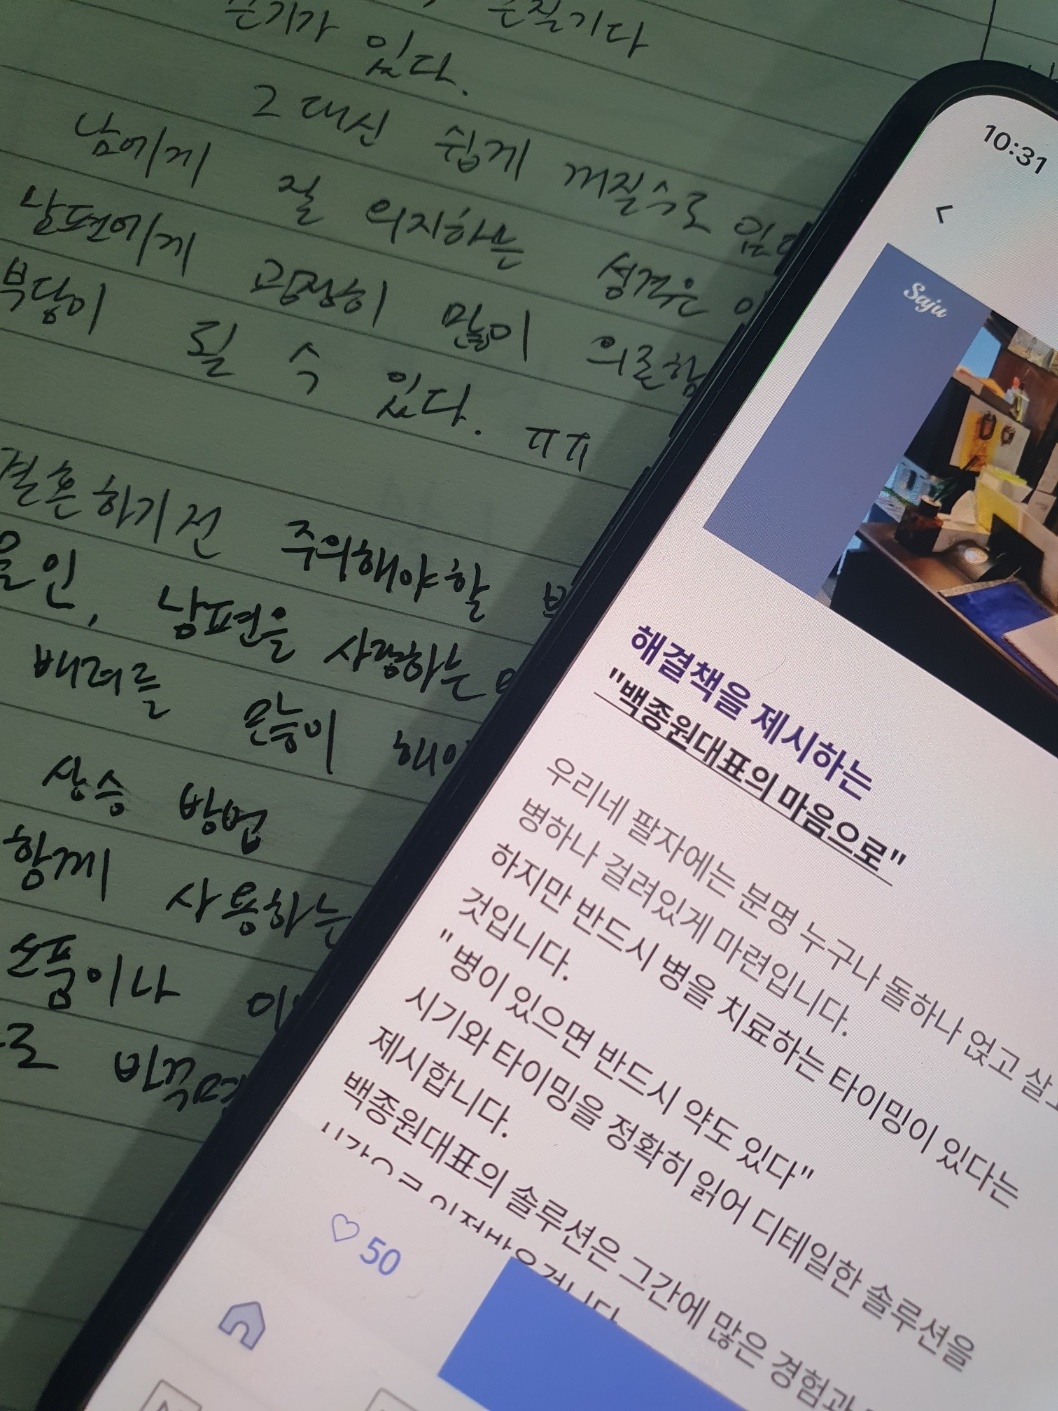 끈기가 있다.
그대신 쉽게 꺼질수로 있다
남에게 잘 의지하는 성격은
남편에게 굉장히 많이 의존함
부담이 될 수 있다. ㅠㅠ
결혼하기 전 주의해야할
남편을 사랑하는
배려를 많이
상승 방법
함께 사용하는
소품이나
10:31
<
Saju
해결책을 제시하는
"백종원대표의 마음으로"
우리네 팔자에는 분명 누구나 돌하나 얹고 살
병하나 걸려있게 마련입니다.
하지만 반드시 병을 치료하는 타이밍이 있다는
것입니다.
"병이 있으면 반드시 약도 있다"
시기와 타이밍을 정확히 읽어 디테일한 솔루션을
제시합니다.
백종원대표의 솔루션은 그간에 많은 경험과
50